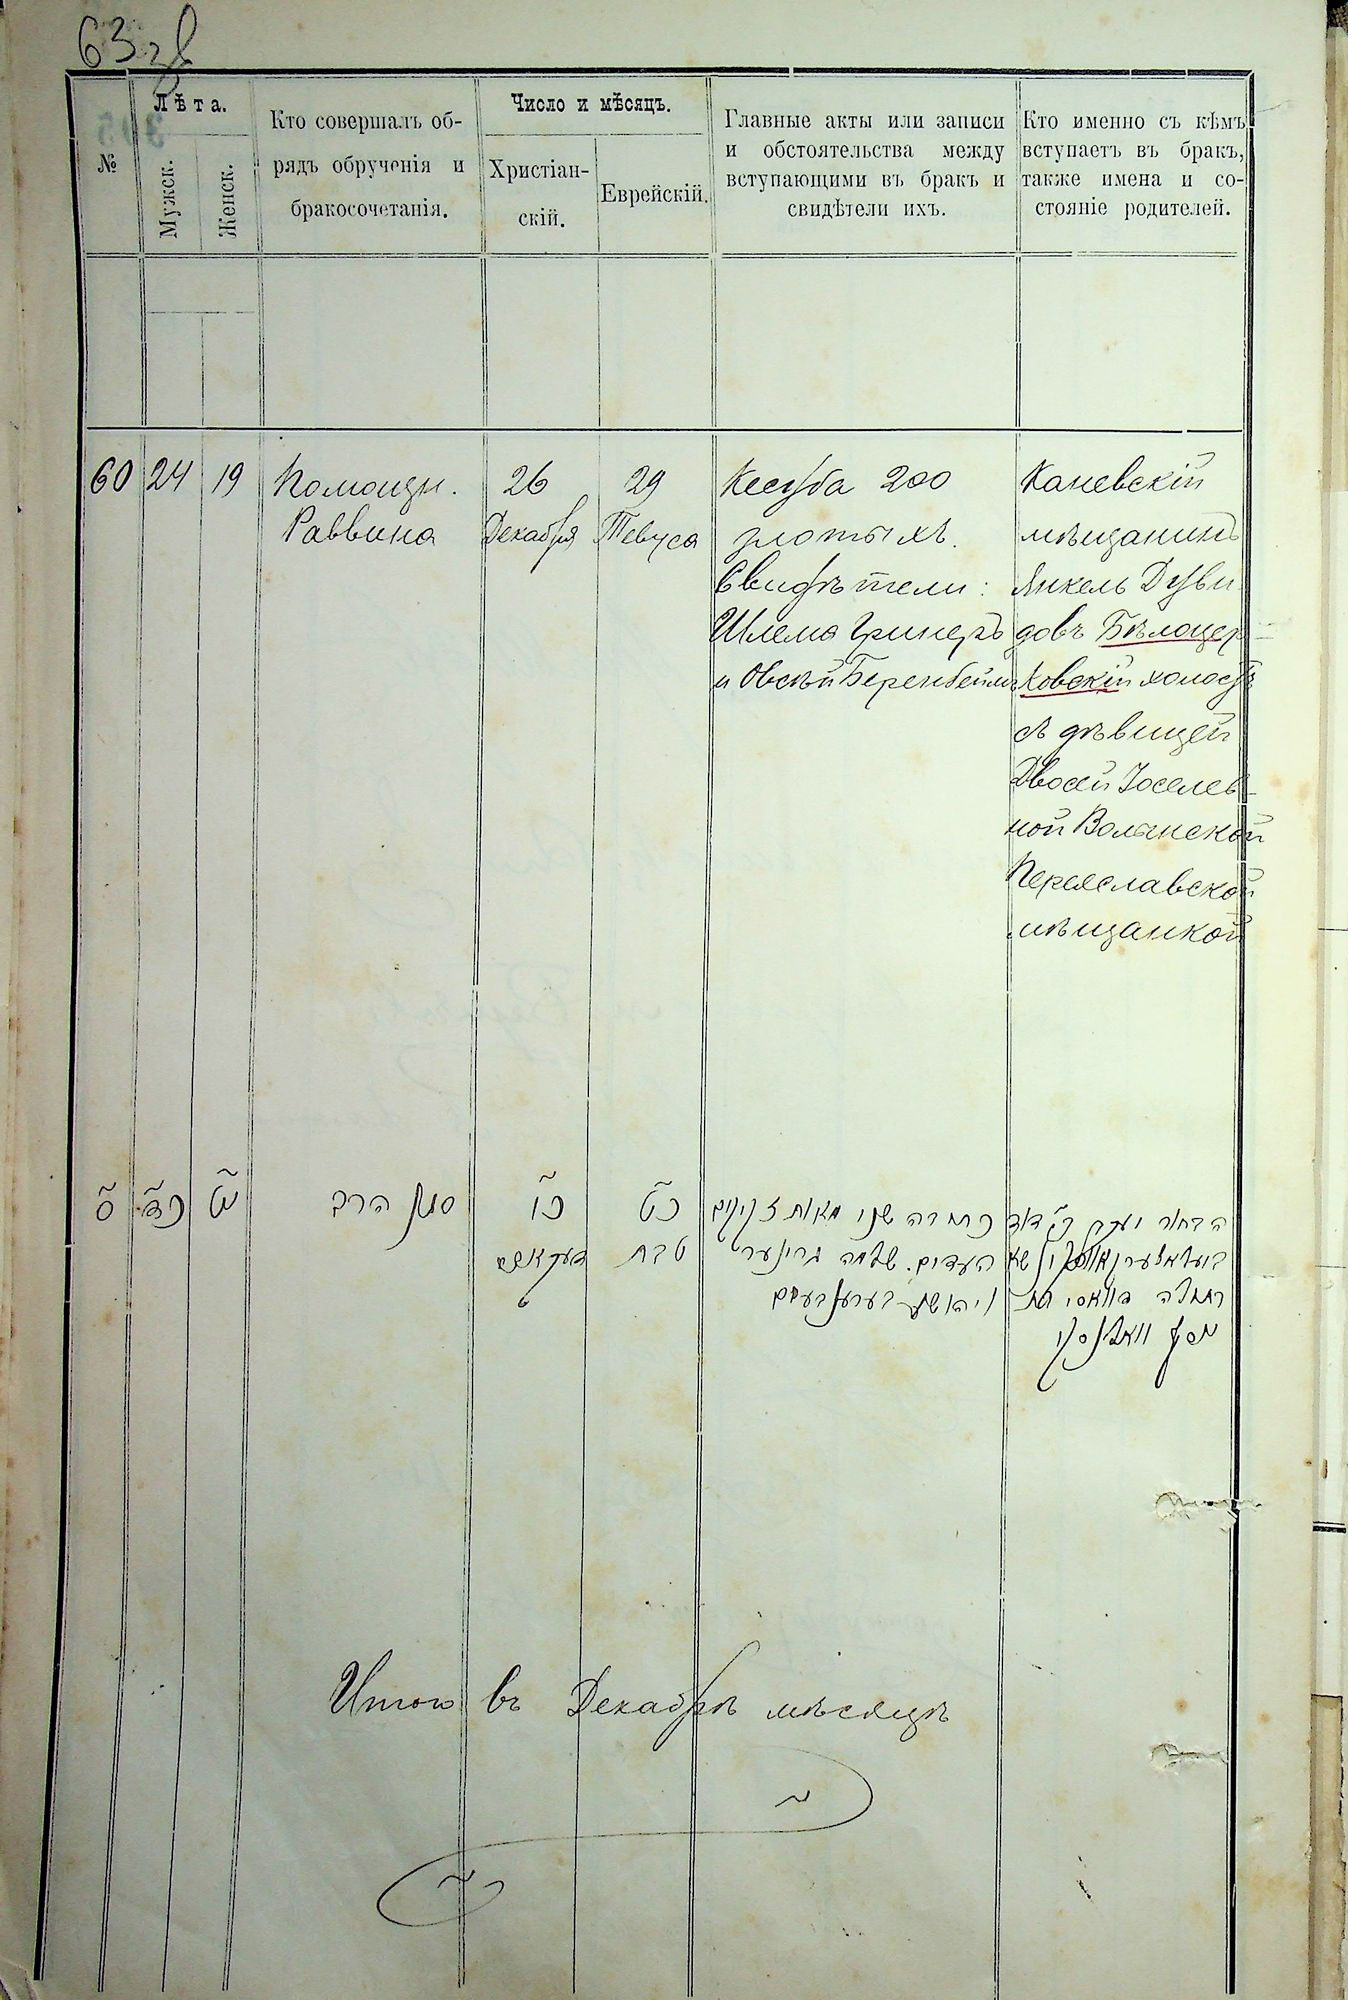 63 зв
№
Лѣта.
Мужск.
Женск.
Кто совершалъ об-
рядъ обрученія и
бракосочетанія.
Число и мѣсяцъ.
Христіан-
скій.
Еврейскій.
Главные акты или записи
и обстоятельства между
вступающими въ бракъ и
свидѣтели ихъ.
Кто именно съ кѣмъ
вступаетъ въ бракъ,
также имена и со-
стояніе родителей.
60
24
19
Помощн.
Раввина
26
Декабря
29
Тевуса
Кесуба 200
злотыхъ.
Свидѣтели:
Шлема Гринеръ
и Овсѣй Беренбеймъ
Каневскій
мѣщанинъ
Янкель Дуви-
довъ Бѣлоцер-
ковскій холостъ
съ дѣвицей
Двосей Іоселев-
ной Волынской
Переяславской
мѣщанкой
ס
כד
יט
סגן הרב
כו
דעקאבער
כט
טבת
כתובה שני מאות זקוקים
העדים. שלמה גרינער
ויהושע בערענבעים
הבחור יעקב ב״ר דוד
ביעלאצערקאווסקי נשא
בתולה דוואסי בת
יוסף וואלינסקי
Итого въ Декабрѣ мѣсяцѣ